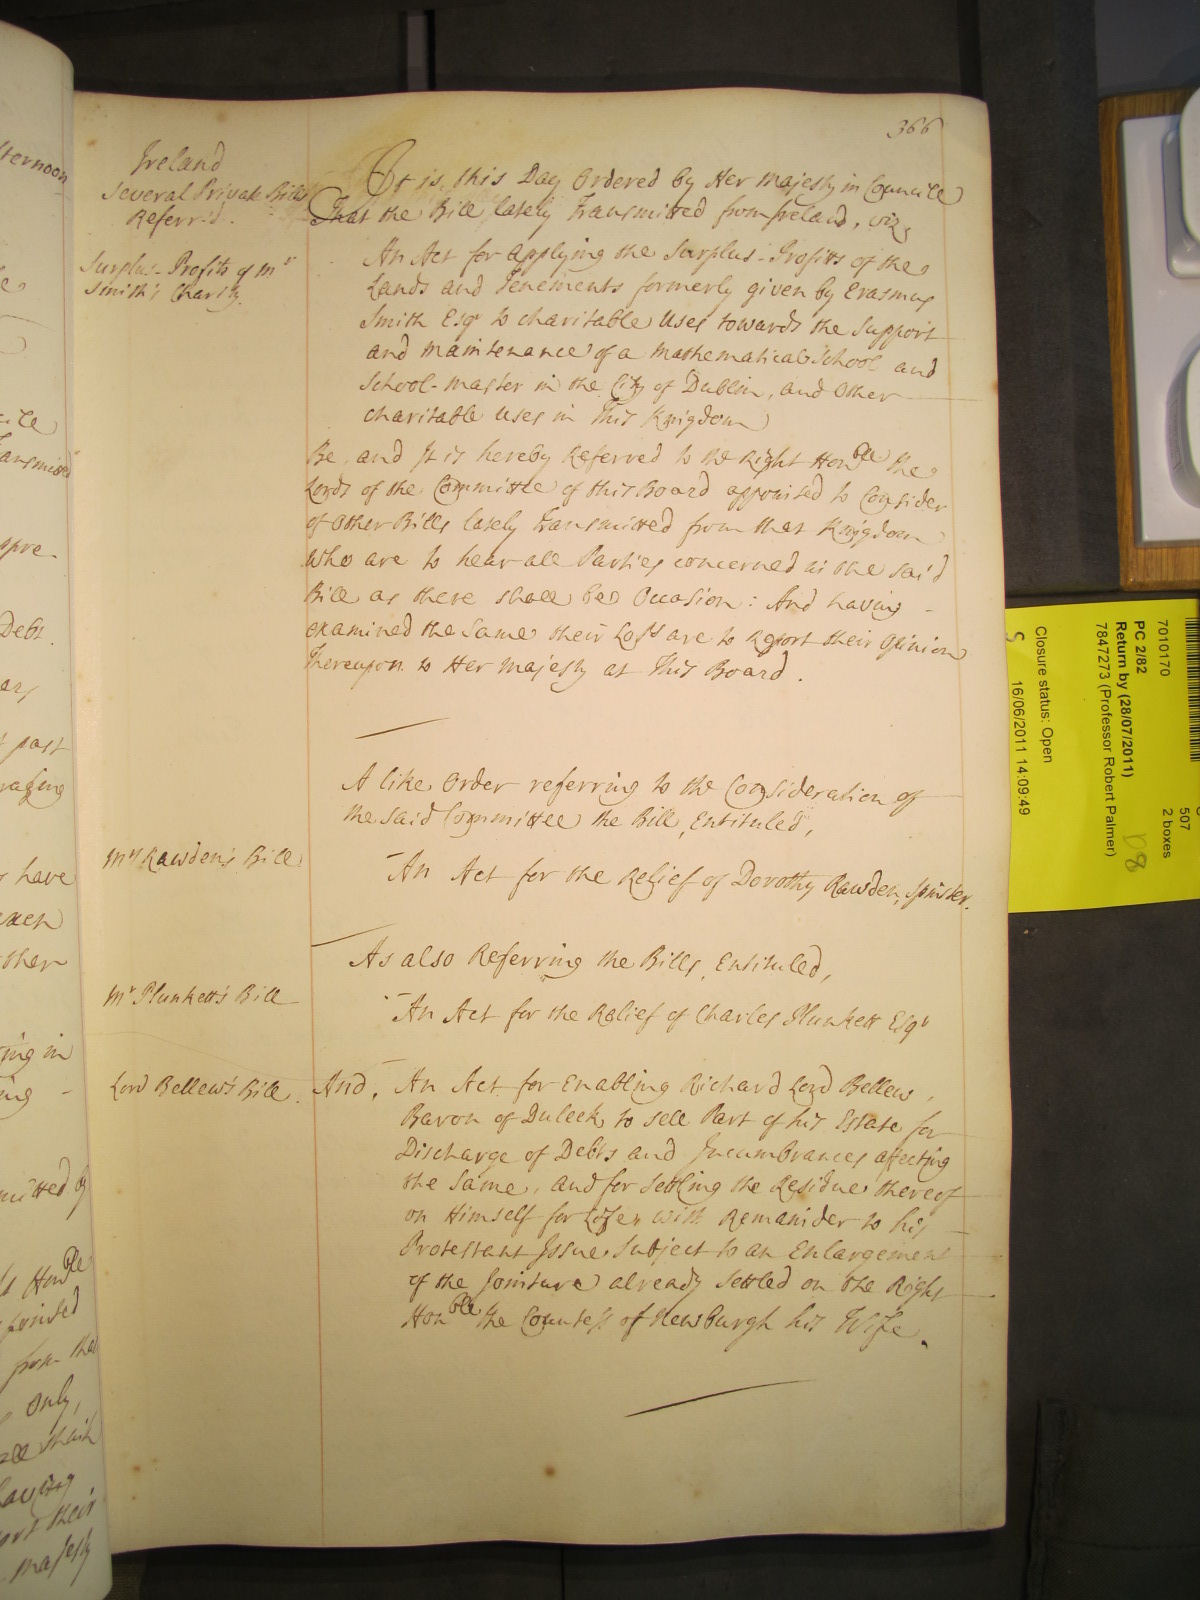 366
Ireland
Several Private Bills
Referrd.
It is, this Day Ordered by Her Majesty in Councill
That the Bill lately Transmitted from Ireland, viz,
Surplus-Profits of Mr
Smith's Charity.
An Act for applying the Surplus-Profits of the
Lands and Tenements formerly given by Erasmus
Smith Esqr to charitable Uses towards the Support
and maintenance of a Mathematical School and
School-Master in the City of Dublin, and Other
charitable Uses in This Kingdom
Be, and It is hereby Referred to the Right Honble the
Lords of the Committee of this Board appointed to Consider
of Other Bills lately Transmitted from that Kingdom
Who are to hear all Parties concerned in the said
Bill as there shall be Occasion: And having -
examined the Same their Lopps are to Report their Opinion
Thereupon to Her Majesty at This Board.
A like Order referring to the Consideration of
the said Committee the Bill, Entituled,
Mrs Rawden's Bill
An Act for the Relief of Dorothy Rawden, Spinster.
As also Referring the Bills, Entituled,
Mr Plunkett's Bill
An Act for the Relief of Charles Plunkett Esqr
Lord Bellew's Bill.
And, An Act for Enabling Richard Lord Bellew,
Baron of Duleek, to sell Part of his Estate for
Discharge of Debts and Incumbrances affecting
the Same, and for Settling the Residue thereof
on Himself for Life, with Remainder to his
Protestant Issue, Subject to an Enlargement
of the Jointure already Settled on the Right
Honble the Countess of Newburgh his Wife.
ternoon
Debt
past
have
each
other
ing in
mitted by
Honble
from the
only,
having
ort their
Majesty
7010170
507
2 boxes
PC 2/82
Return by (28/07/2011)
7847273 (Professor Robert Palmer)
D8
Closure status: Open
S 16/06/2011 14:09:49